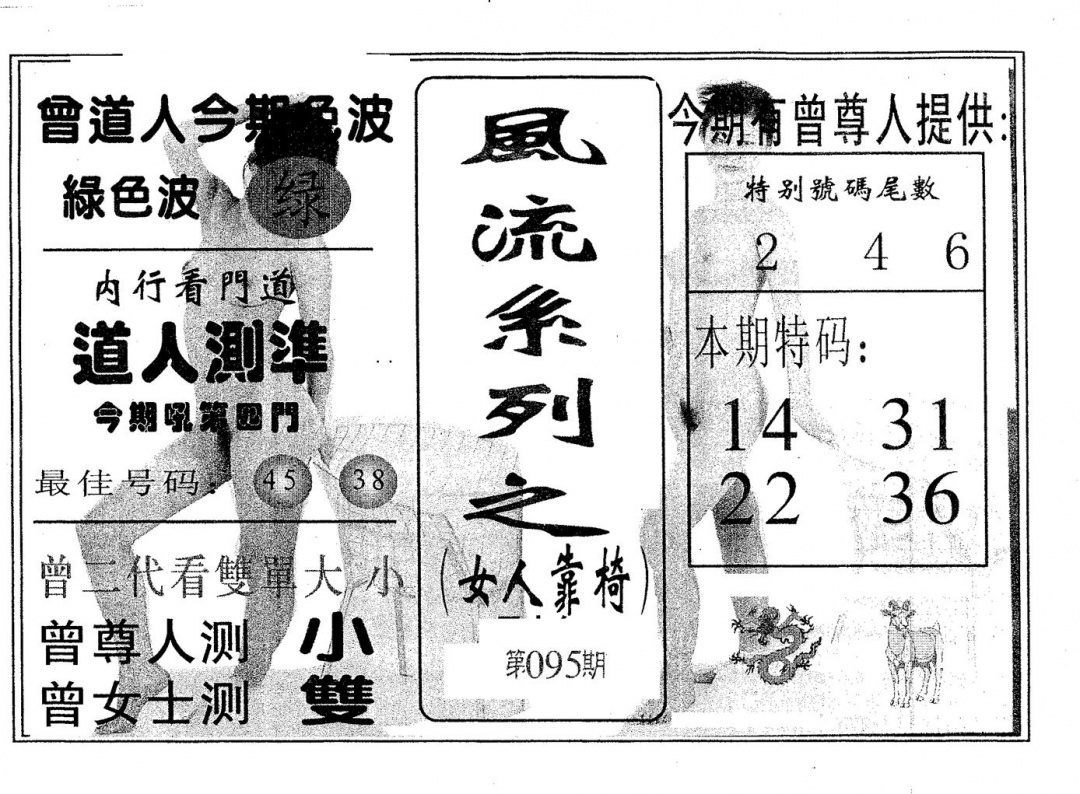 曾道人今期色波
綠色波 绿
内行看門道
道人測準
今期吼第四門
最佳号码: 45 38
曾二代看雙單大小
曾尊人测 小
曾女士测 雙
風流系列之
(女人靠椅)
第095期
今期有曾尊人提供:
特别號碼尾數
2 4 6
本期特码:
14 31
22 36